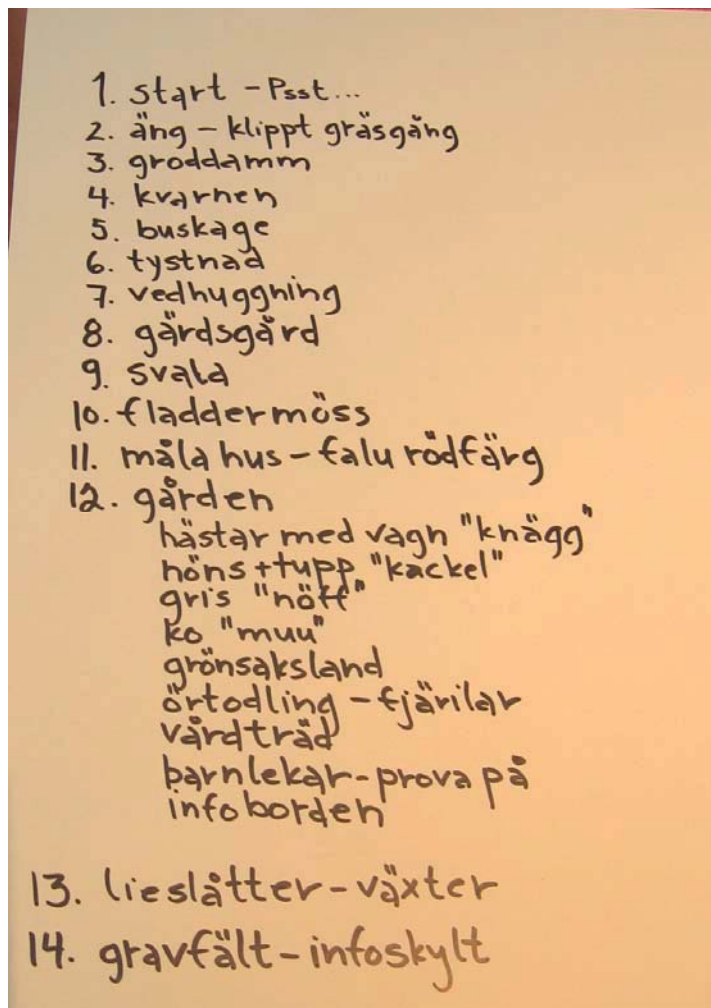 1. start - Psst...
2. äng - klippt gräsgång
3. groddamm
4. kvarnen
5. buskage
6. tystnad
7. vedhuggning
8. gärdsgård
9. svala
10. fladdermöss
11. måla hus - falu rödfärg
12. gården
hästar med vagn "knägg"
höns + tupp "kackel"
gris "nöff"
ko "muu"
grönsaksland
örtodling - fjärilar
vårdträd
barnlekar - prova på
infoborden
13. lieslåtter - växter
14. gravfält - infoskylt